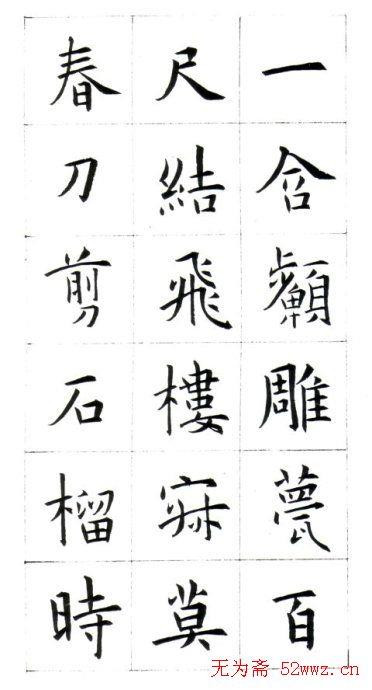 一含顰雕甍百
尺結飛樓寂莫
春刀剪石榴時
无为斋-52wwz.cn